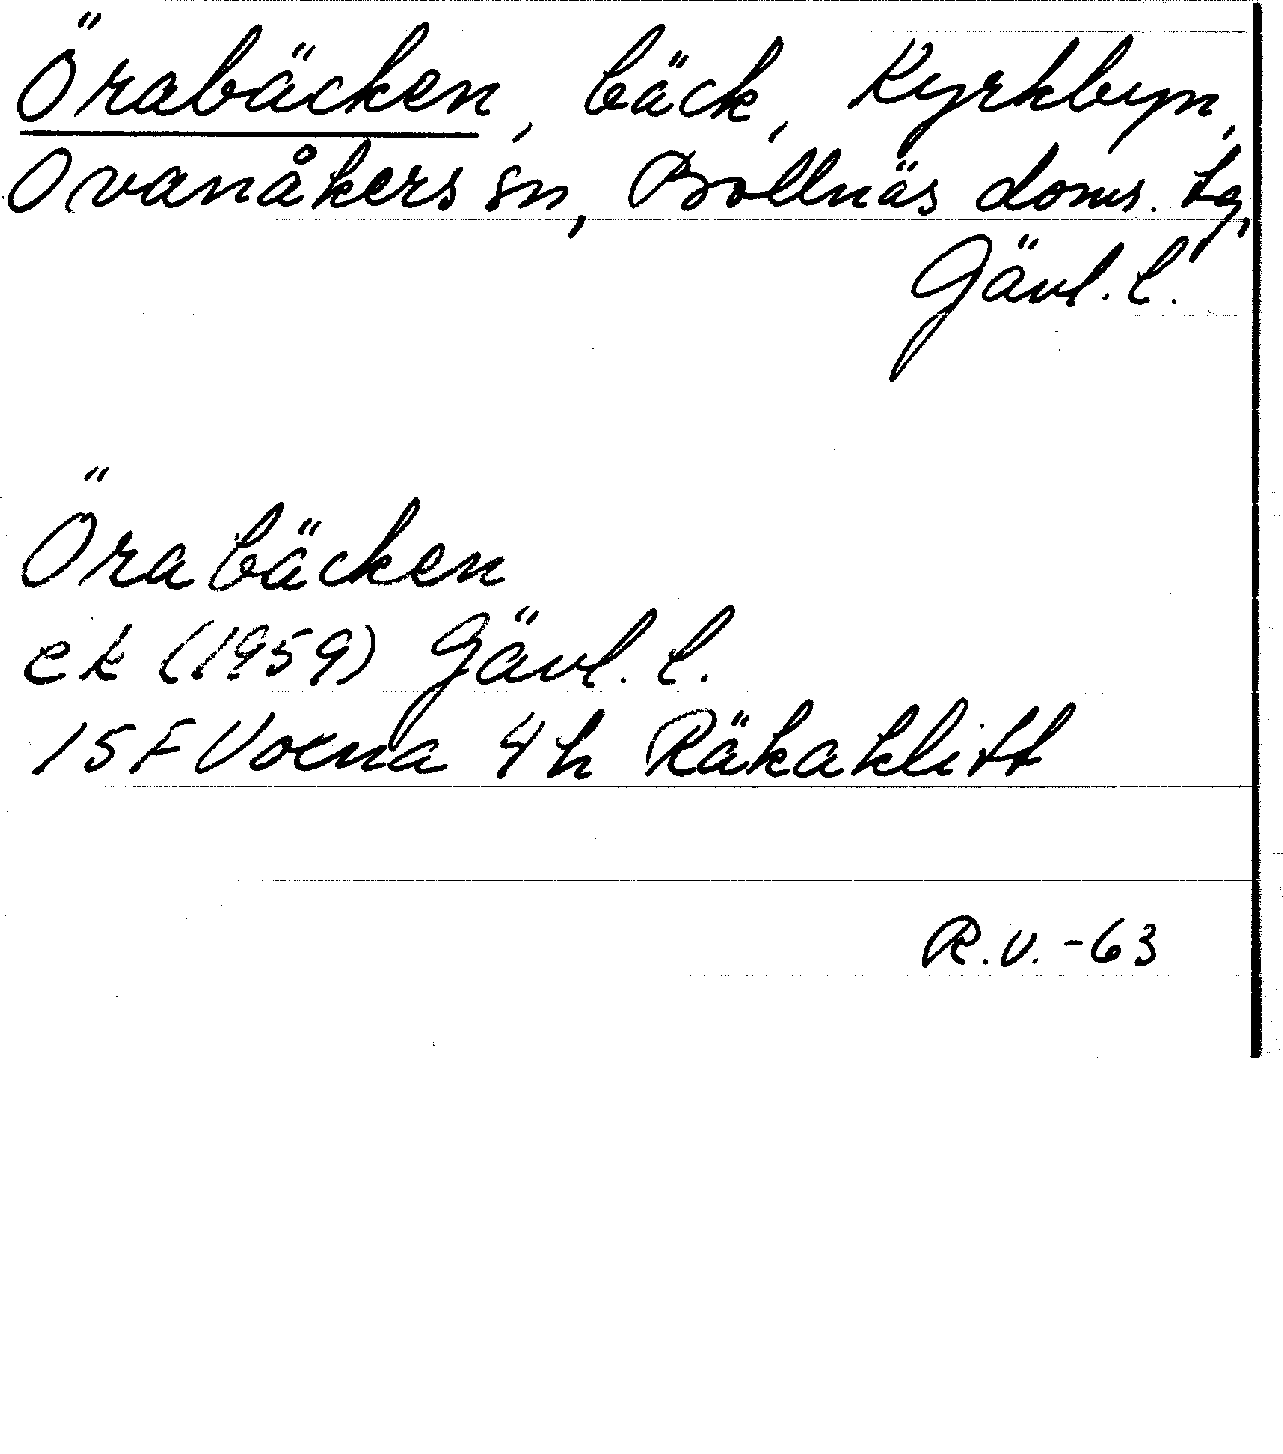 Örabäcken, bäck, Kyrkbyn,
Ovanåkers sn, Bollnäs doms. tg,
Gävl. l.
Örabäcken
ek (1959) Gävl. l.
15F Voxna 4h Räkaklitt
R.V. -63